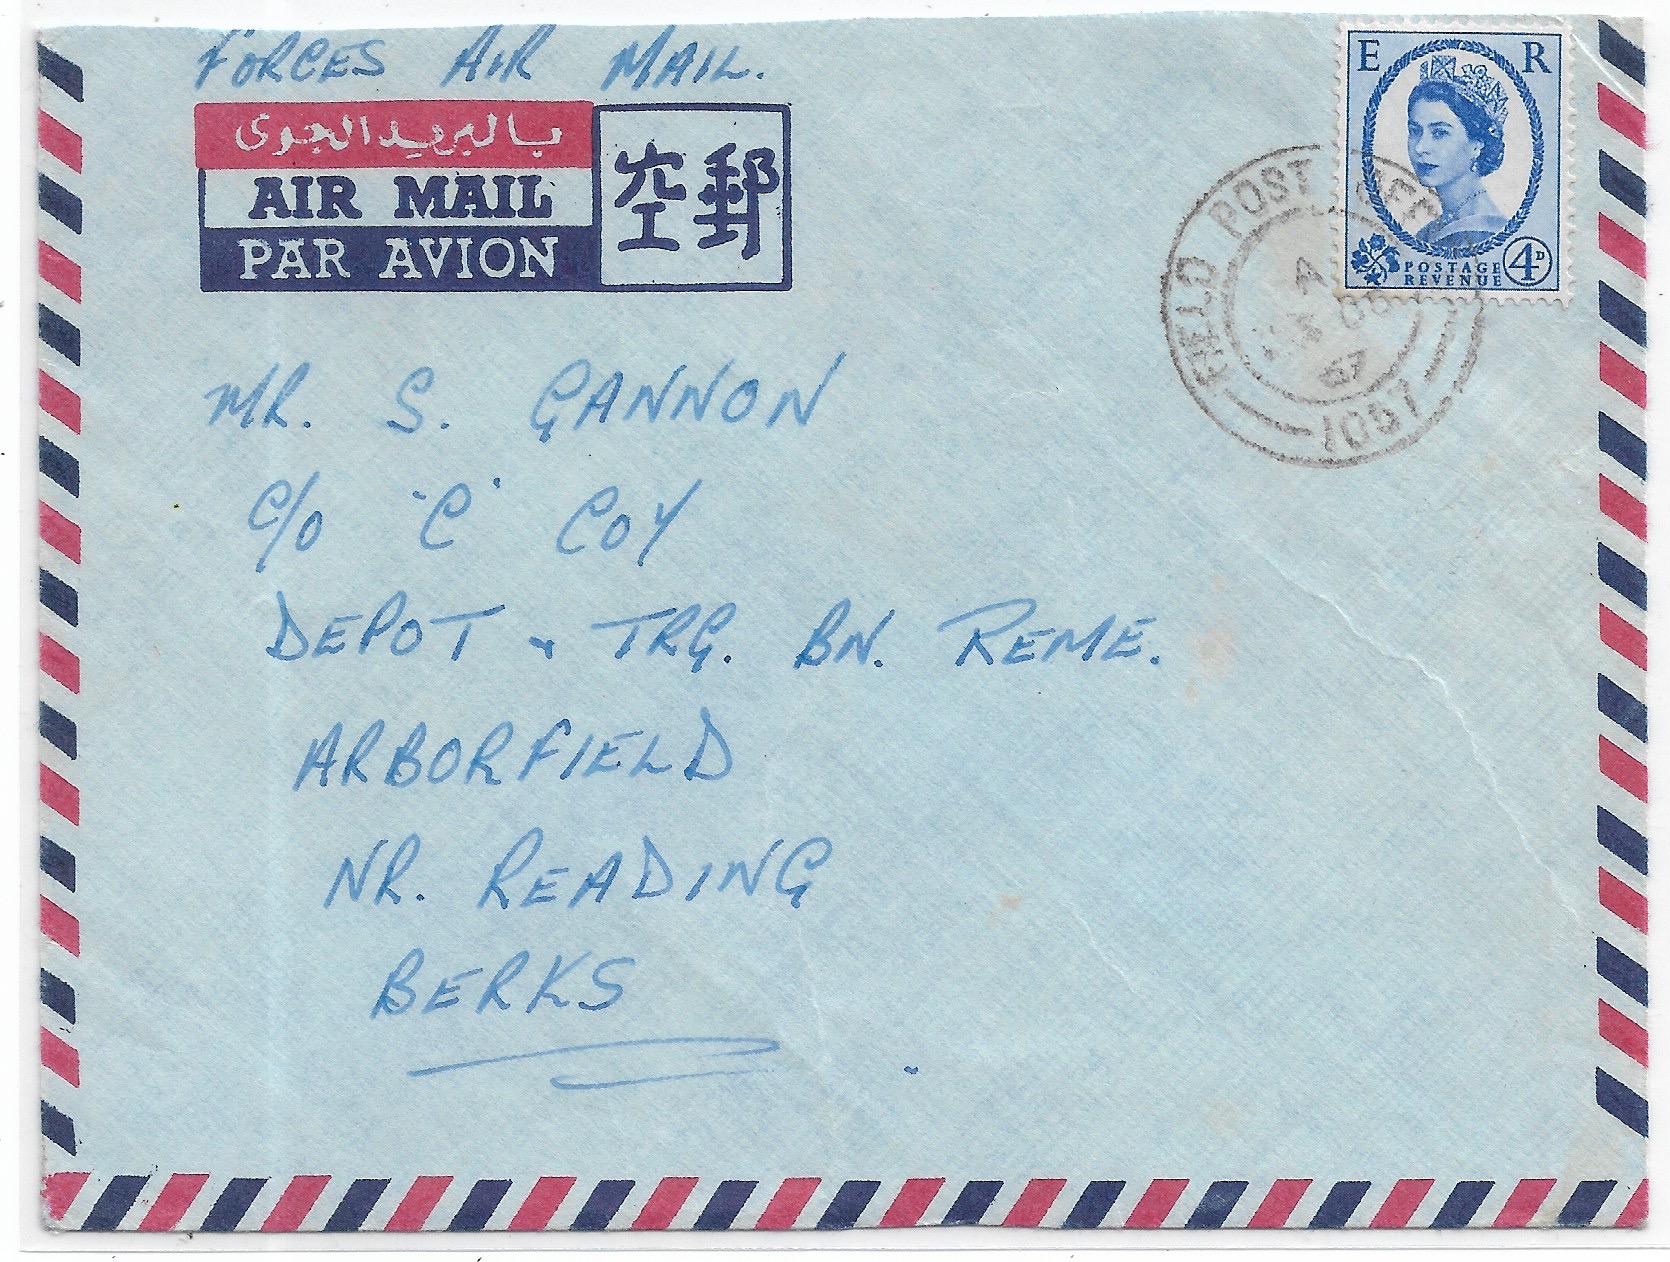 FORCES AIR MAIL.
بالبريد الجوى
AIR MAIL
PAR AVION
空郵
E R
POSTAGE
REVENUE
4D
FIELD POST OFFICE
A
67
1051
MR. S. GANNON
C/O 'C' COY
DEPOT & TRG. BN. REME.
ARBORFIELD
NR. READING
BERKS